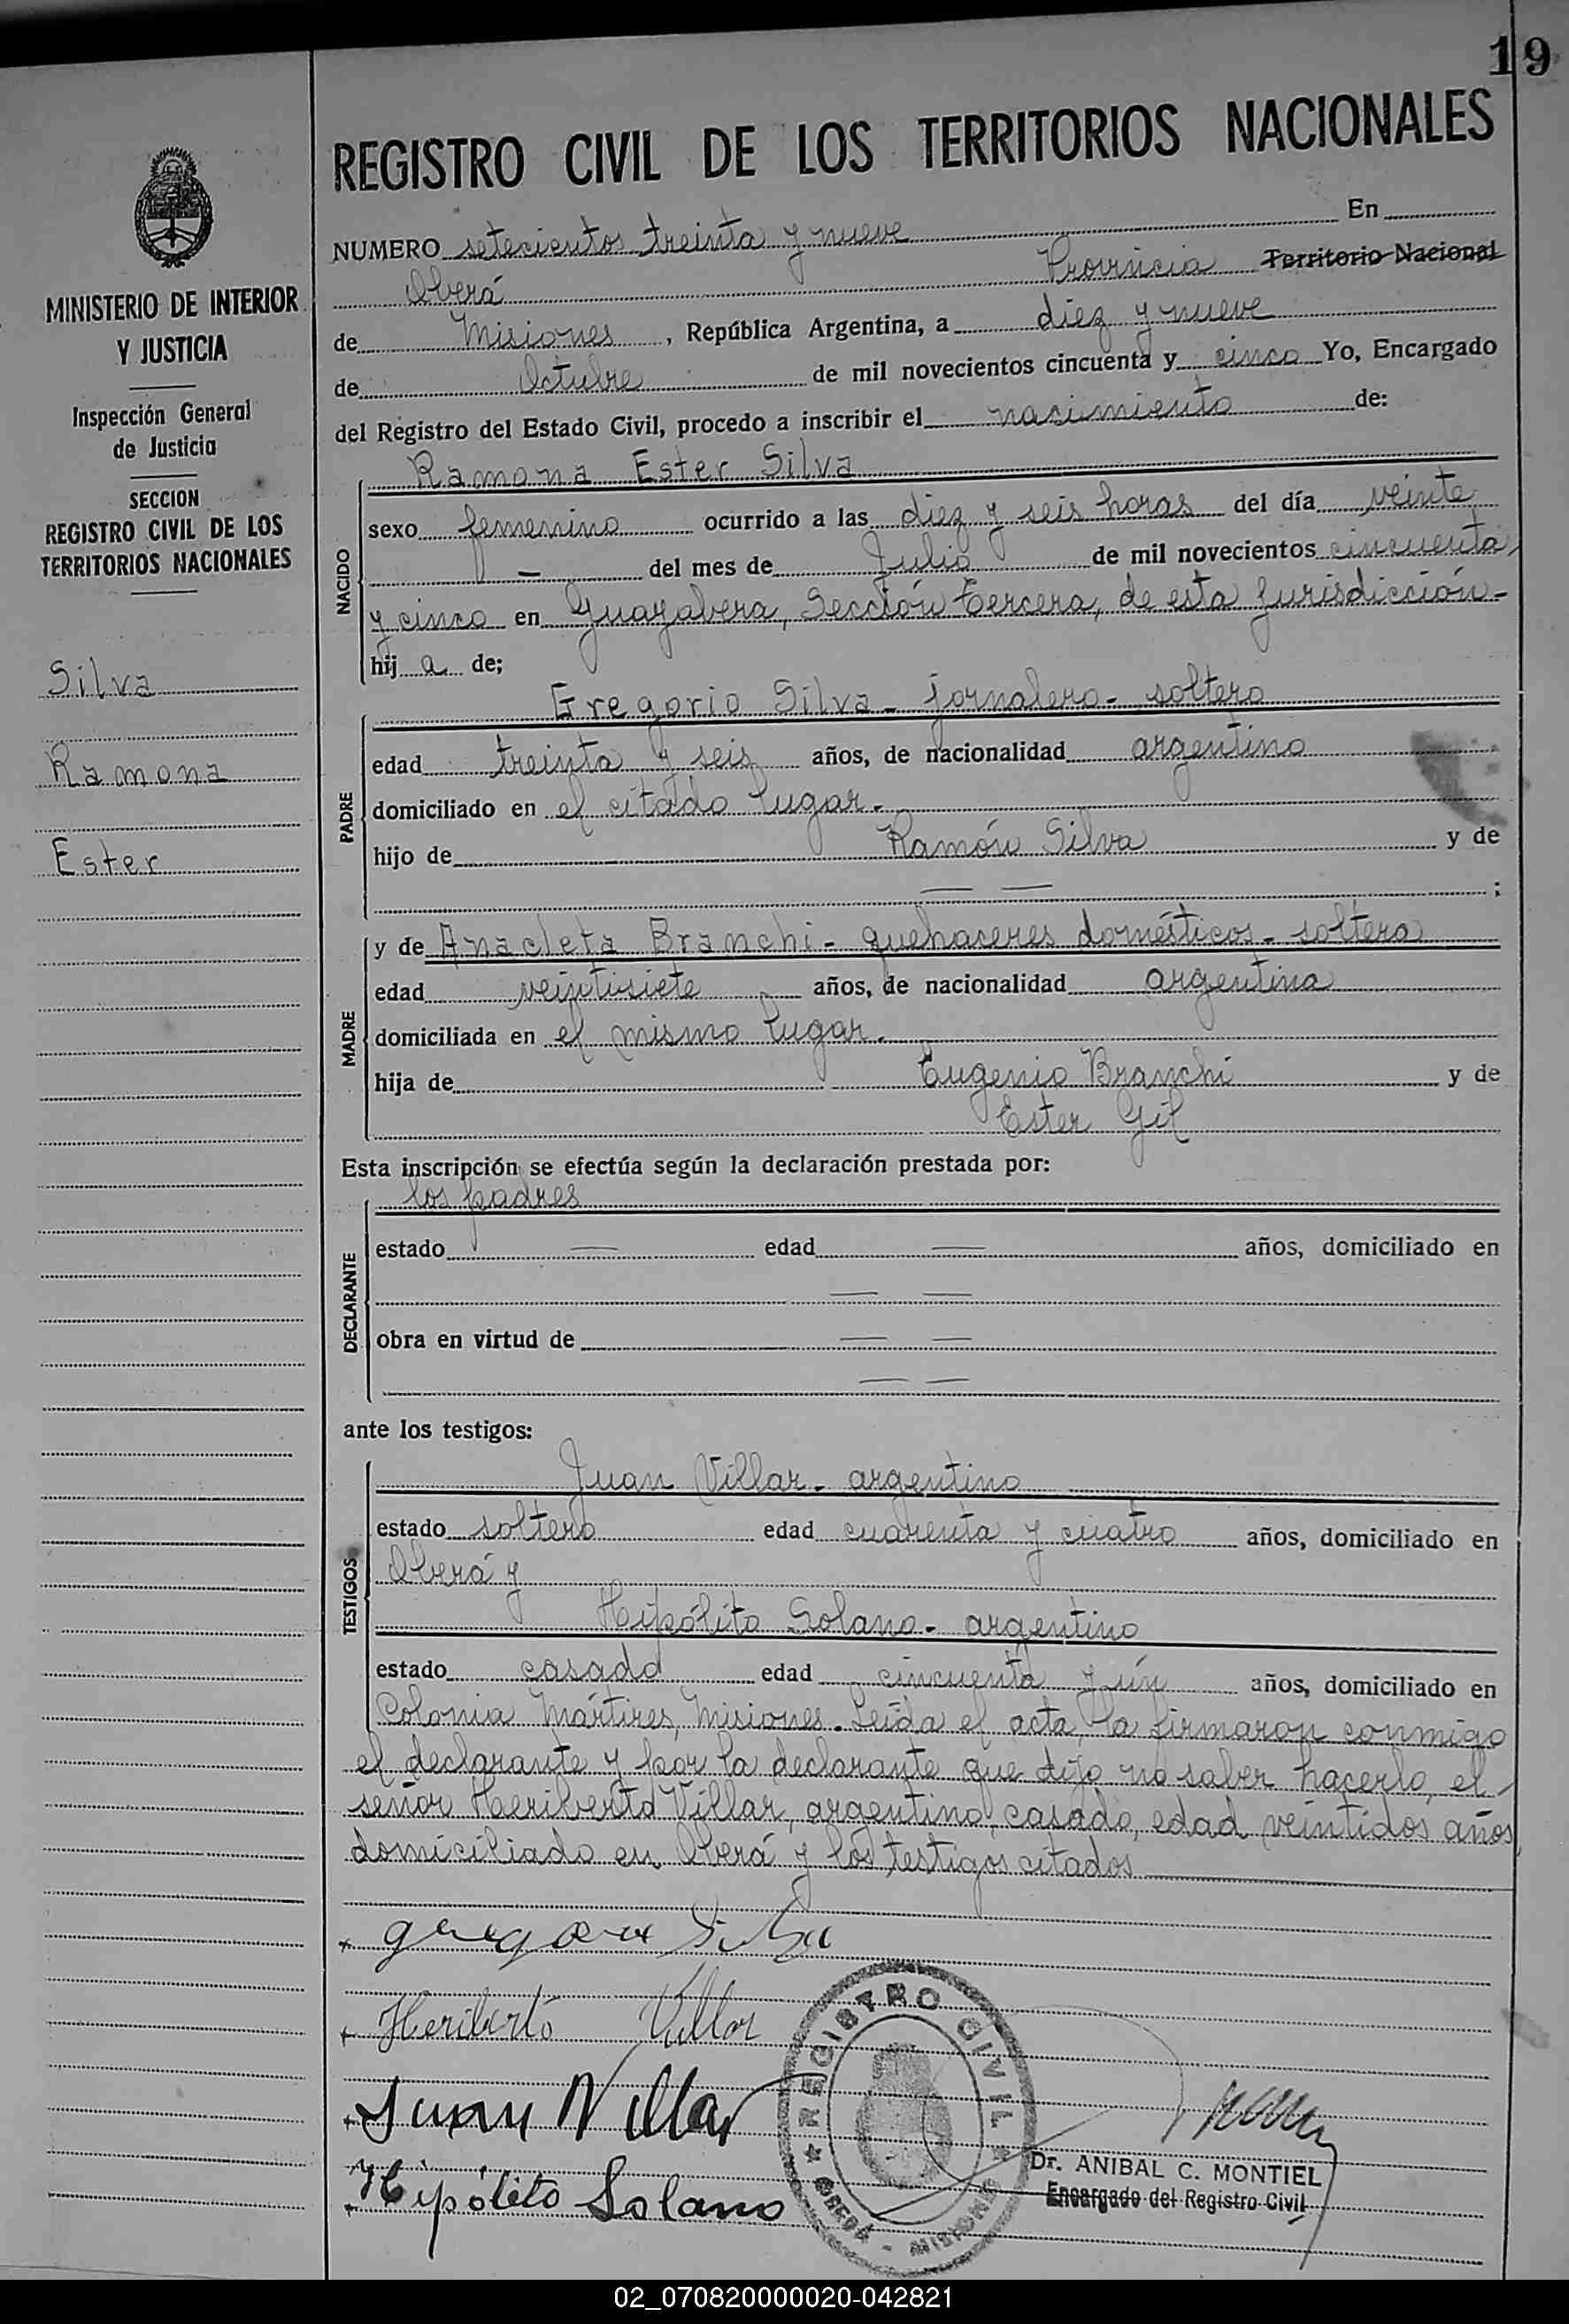 19
REGISTRO CIVIL DE LOS TERRITORIOS NACIONALES
NUMERO setecientos treinta y nueve En
Oberá Provincia Territorio Nacional
de Misiones, República Argentina, a diez y nueve
de Octubre de mil novecientos cincuenta y cinco Yo, Encargado
del Registro del Estado Civil, procedo a inscribir el nacimiento de:
MINISTERIO DE INTERIOR
Y JUSTICIA
Inspección General
de Justicia
SECCION
REGISTRO CIVIL DE LOS
TERRITORIOS NACIONALES
Silva
Ramona
Ester
NACIDO
Ramona Ester Silva
sexo femenino ocurrido a las diez y seis horas del día veinte
— del mes de Julio de mil novecientos cincuenta
y cinco en Guayabera, Sección tercera, de esta jurisdicción-
hij a de;
PADRE
Gregorio Silva - jornalero - soltero
edad treinta y seis años, de nacionalidad argentino
domiciliado en el citado lugar.
hijo de Ramón Silva y de
— — ;
MADRE
y de Anacleta Branchi - quehaceres domésticos - soltera
edad veintisiete años, de nacionalidad argentina
domiciliada en el mismo lugar.
hija de Eugenio Branchi y de
Ester Gil
Esta inscripción se efectúa según la declaración prestada por:
DECLARANTE
los padres
estado — edad — años, domiciliado en
— —
obra en virtud de — —
— —
ante los testigos:
TESTIGOS
Juan Villar - argentino
estado soltero edad cuarenta y cuatro años, domiciliado en
Oberá y
Hipólito Solano - argentino
estado casado edad cincuenta y ún años, domiciliado en
Colonia Mártires, Misiones. Leída el acta, la firmaron conmigo
el declarante y por la declarante que dijo no saber hacerlo, el
señor Heriberto Villar, argentino, casado, edad veintidos años,
domiciliado en Oberá y los testigos citados
gregorio Silva
Heriberto Villar
Juan Villar
Hipólito Solano
REGISTRO CIVIL
OBERÁ - MISIONES
Dr. ANIBAL C. MONTIEL
Encargado del Registro Civil
02_070820000020-042821